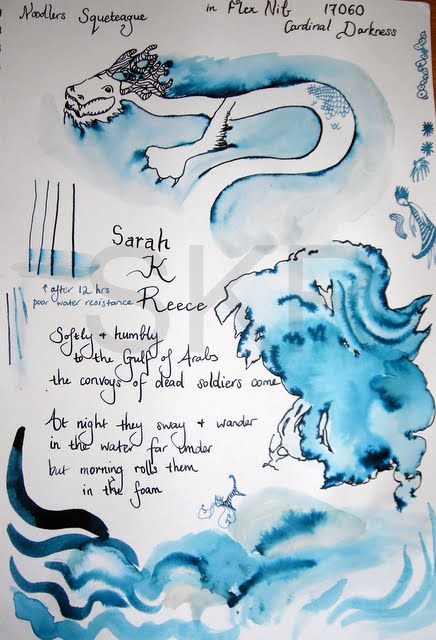 Noodlers Squeteague in Flex Nib 17060
Cardinal Darkness
Sarah
K
Reece
↑ after 12 hrs
poor water resistance
SKR
Softly + humbly
to the Gulf of Arabs
the convoys of dead soldiers come
At night they sway + wander
in the water far under
but morning rolls them
in the foam